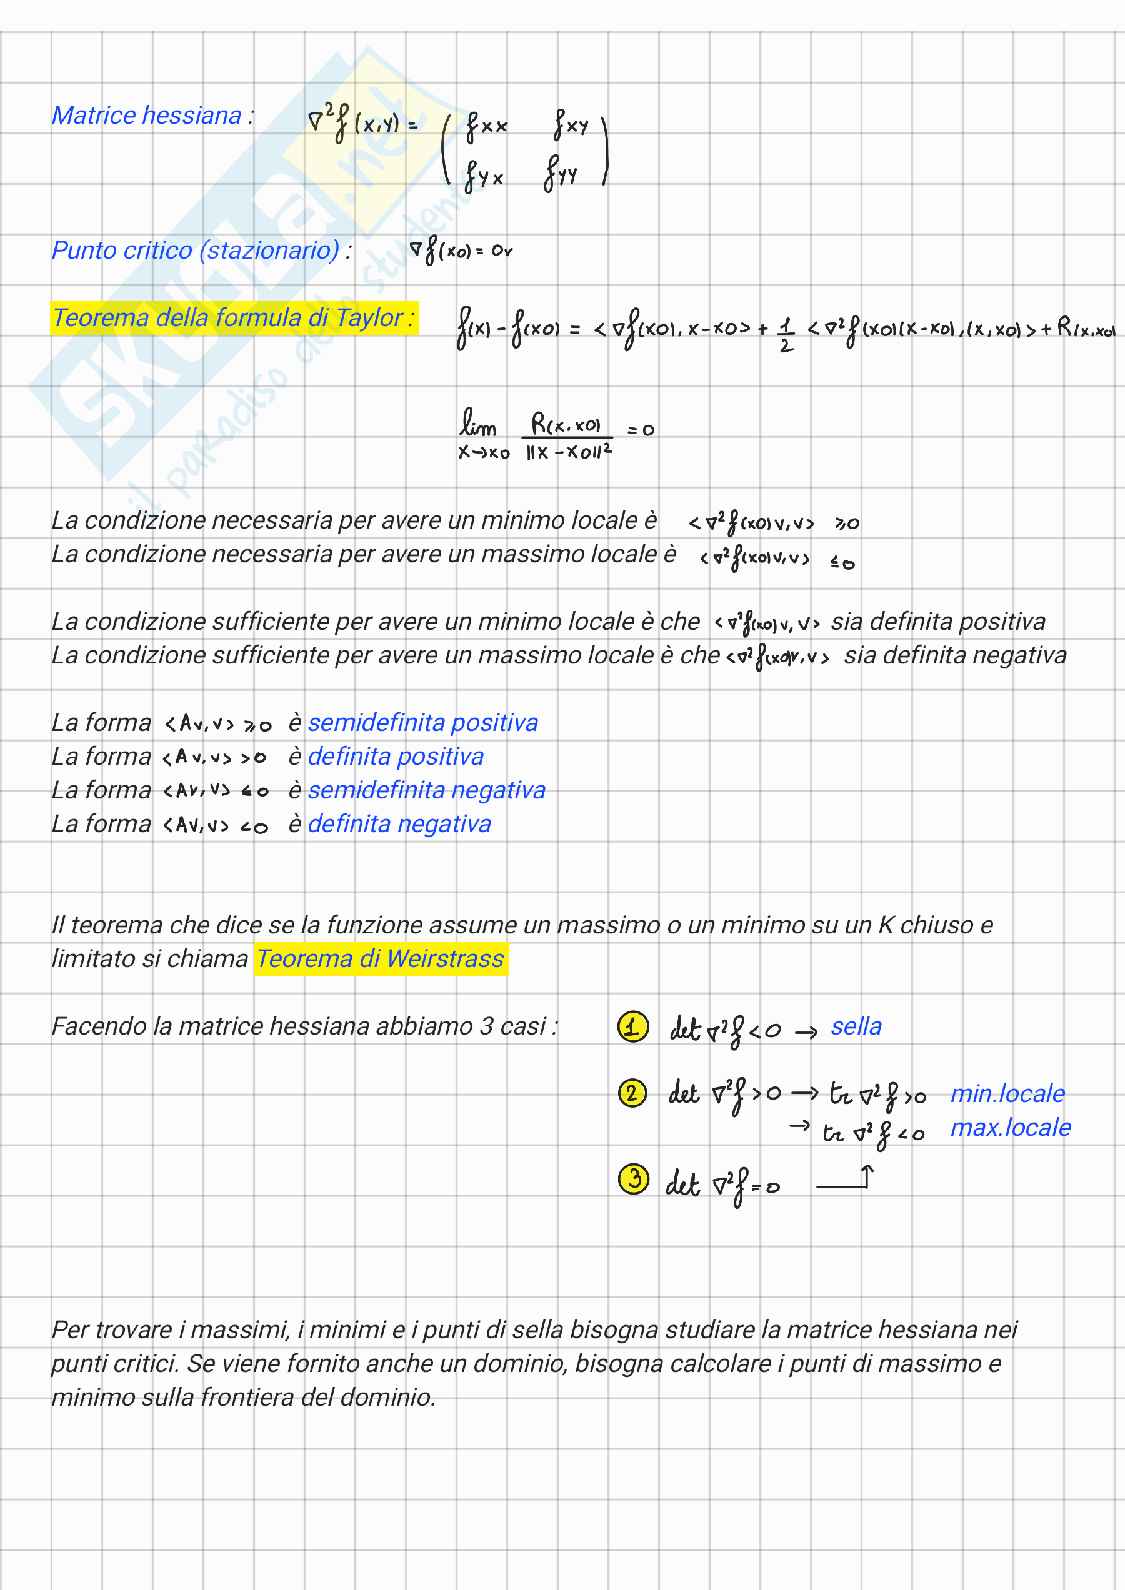 SKUOLA.net
il paradiso dello studente
Matrice hessiana : ∇²f(x,y) = ( fxx fxy
fyx fyy )
Punto critico (stazionario) : ∇f(x0) = 0v
Teorema della formula di Taylor : f(x) - f(x0) = <∇f(x0), x-x0> + 1/2 <∇²f(x0)(x-x0), (x,x0)> + R(x,x0)
lim x→x0 R(x,x0) / ||x-x0||² = 0
La condizione necessaria per avere un minimo locale è <∇²f(x0)v,v> ⩾0
La condizione necessaria per avere un massimo locale è <∇²f(x0)v,v> ≤0
La condizione sufficiente per avere un minimo locale è che <∇²f(x0)v,v> sia definita positiva
La condizione sufficiente per avere un massimo locale è che <∇²f(x0)v,v> sia definita negativa
La forma <Av,v> ⩾0 è semidefinita positiva
La forma <Av,v> >0 è definita positiva
La forma <Av,v> ≤0 è semidefinita negativa
La forma <Av,v> <0 è definita negativa
Il teorema che dice se la funzione assume un massimo o un minimo su un K chiuso e
limitato si chiama Teorema di Weirstrass
Facendo la matrice hessiana abbiamo 3 casi : 1 det ∇²f <0 → sella
2 det ∇²f >0 → tr ∇²f >0 min.locale
→ tr ∇²f <0 max.locale
3 det ∇²f =0
Per trovare i massimi, i minimi e i punti di sella bisogna studiare la matrice hessiana nei
punti critici. Se viene fornito anche un dominio, bisogna calcolare i punti di massimo e
minimo sulla frontiera del dominio.